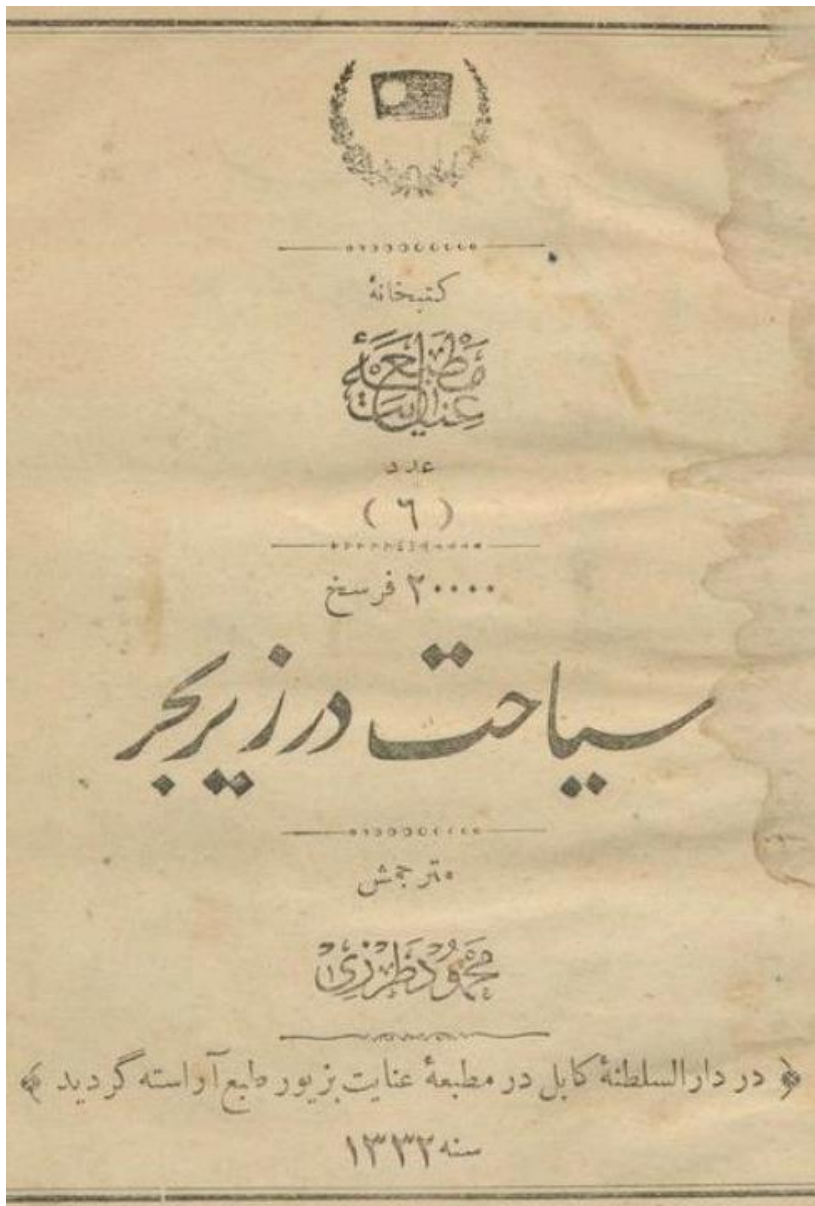 کتبخانهٔ
مطبعهٔ
عنایت
عدد
(٦)
٢٠٠٠٠ فرسخ
سیاحت در زیر بحر
مترجمش
محمود طرزی
﴿ در دارالسلطنهٔ کابل در مطبعهٔ عنایت بزیور طبع آراسته گردید ﴾
سنه ١٣٣٢